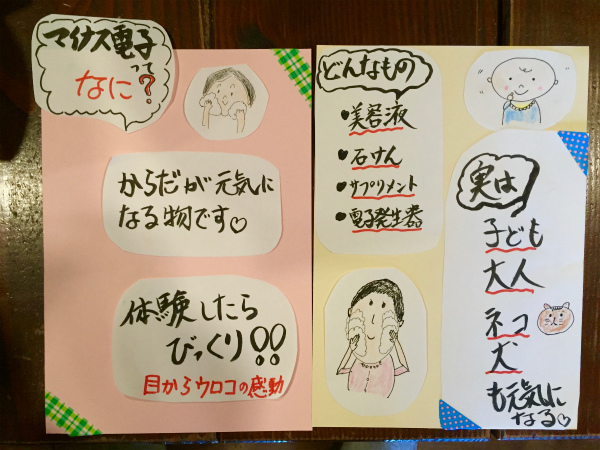 マイナス電子
って?
なに
からだが元気に
なる物です♡
体験したら
びっくり!!
目からウロコの感動
どんなもの
・美容液
・石けん
・サプリメント
・電子発生器
実は
子ども
大人
ネコ
犬
も元気に
なる♡